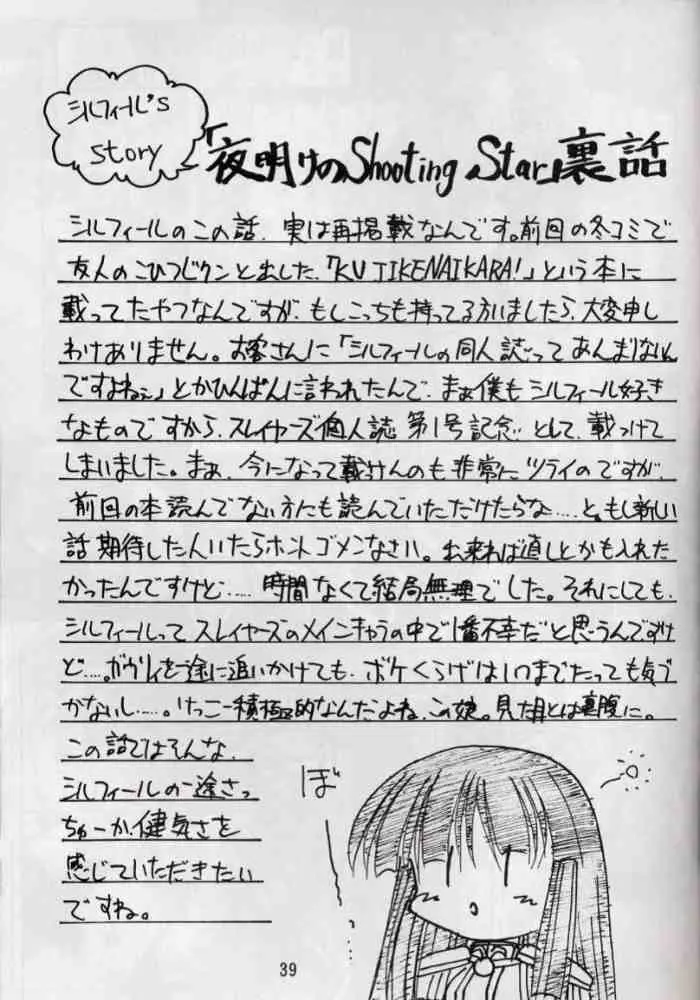 シルフィール's
story
「夜明けのShooting Star」裏話
シルフィールのこの話、実は再掲載なんです。前回の冬コミで
友人のこひつじクンと出した、「KUJIKENAIKARA!」という本に
載ってたやつなんですが、もしこっちも持ってる方いましたら、大変申し
わけありません。お客さんに「シルフィールの同人誌ってあんまりないん
ですよねぇ」とかひんぱんに言われたんで、まぁ僕もシルフィール好き
なものですから、スレイヤーズ個人誌 第1号記念 として、載っけて
しまいました。まぁ、今になって載けんのも非常にツライのですが、
前回の本読んでない方にも読んでいただけたらな……と。もし新しい
話期待した人いたらホントゴメンなさい。出来れば直しとかも入れた
かったんですけど……時間なくて結局無理でした。それにしても、
シルフィールってスレイヤーズのメインキャラの中で1番不幸だと思うんですけ
ど……。ガウリイを一途に追いかけても、ボケくらげはいつまでたっても気づ
かないし……。けっこー積極的なんだよね、この娘。見た目とは裏腹に。
この話ではそんな、
シルフィールの一途さっ
ちゅーか、健気さを
感じていただきたい
ですね。
ぼ〜
39